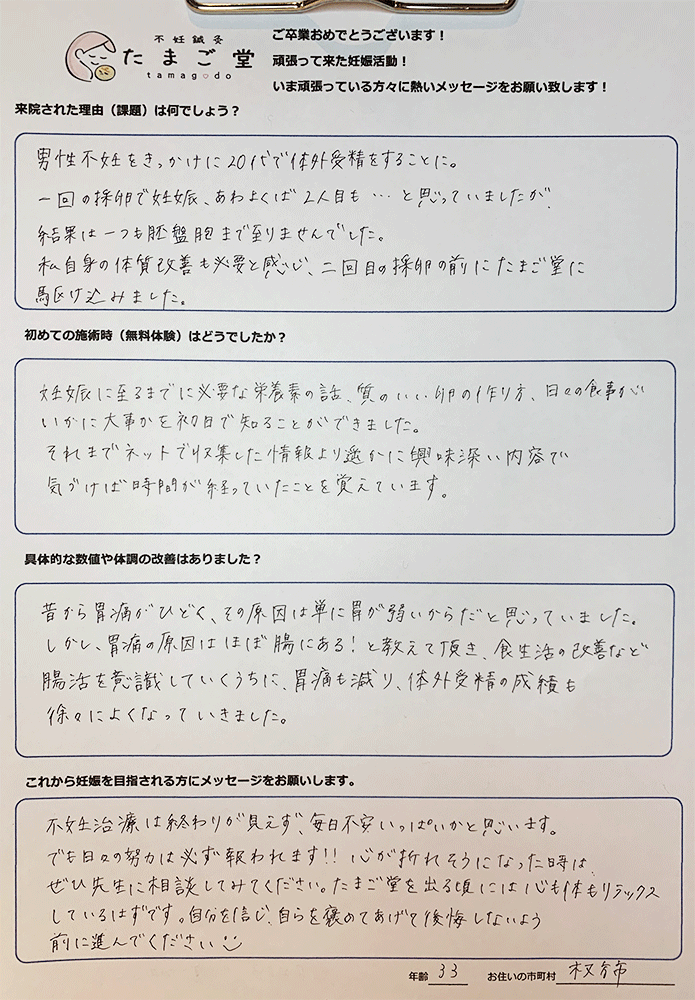 不妊鍼灸
たまご堂
tamagodo
ご卒業おめでとうございます！
頑張って来た妊娠活動！
いま頑張っている方々に熱いメッセージをお願い致します！
来院された理由（課題）は何でしょう？
男性不妊をきっかけに20代で体外受精をすることに。
一回の採卵で妊娠、あわよくば2人目も…と思っていましたが
結果は一つも胚盤胞まで至りませんでした。
私自身の体質改善も必要と感じ、二回目の採卵の前にたまご堂に
駆け込みました。
初めての施術時（無料体験）はどうでしたか？
妊娠に至るまでに必要な栄養素の話、質のいい卵の作り方、日々の食事が
いかに大事かを初日で知ることができました。
それまでネットで収集した情報より遥かに興味深い内容で
気づけば時間が経っていたことを覚えています。
具体的な数値や体調の改善はありました？
昔から胃痛がひどく、その原因は単に胃が弱いからだと思っていました。
しかし、胃痛の原因はほぼ腸にある！と教えて頂き、食生活の改善など
腸活を意識していくうちに、胃痛も減り、体外受精の成績も
徐々によくなっていきました。
これから妊娠を目指される方にメッセージをお願いします。
不妊治療は終わりが見えず、毎日不安いっぱいかと思います。
でも日々の努力は必ず報われます!! 心が折れそうになった時は、
ぜひ先生に相談してみてください。たまご堂を出る頃には心も体もリラックス
しているはずです。自分を信じ、自らを褒めてあげて後悔しないよう
前に進んでください
年齢 33 お住いの市町村 枚方市